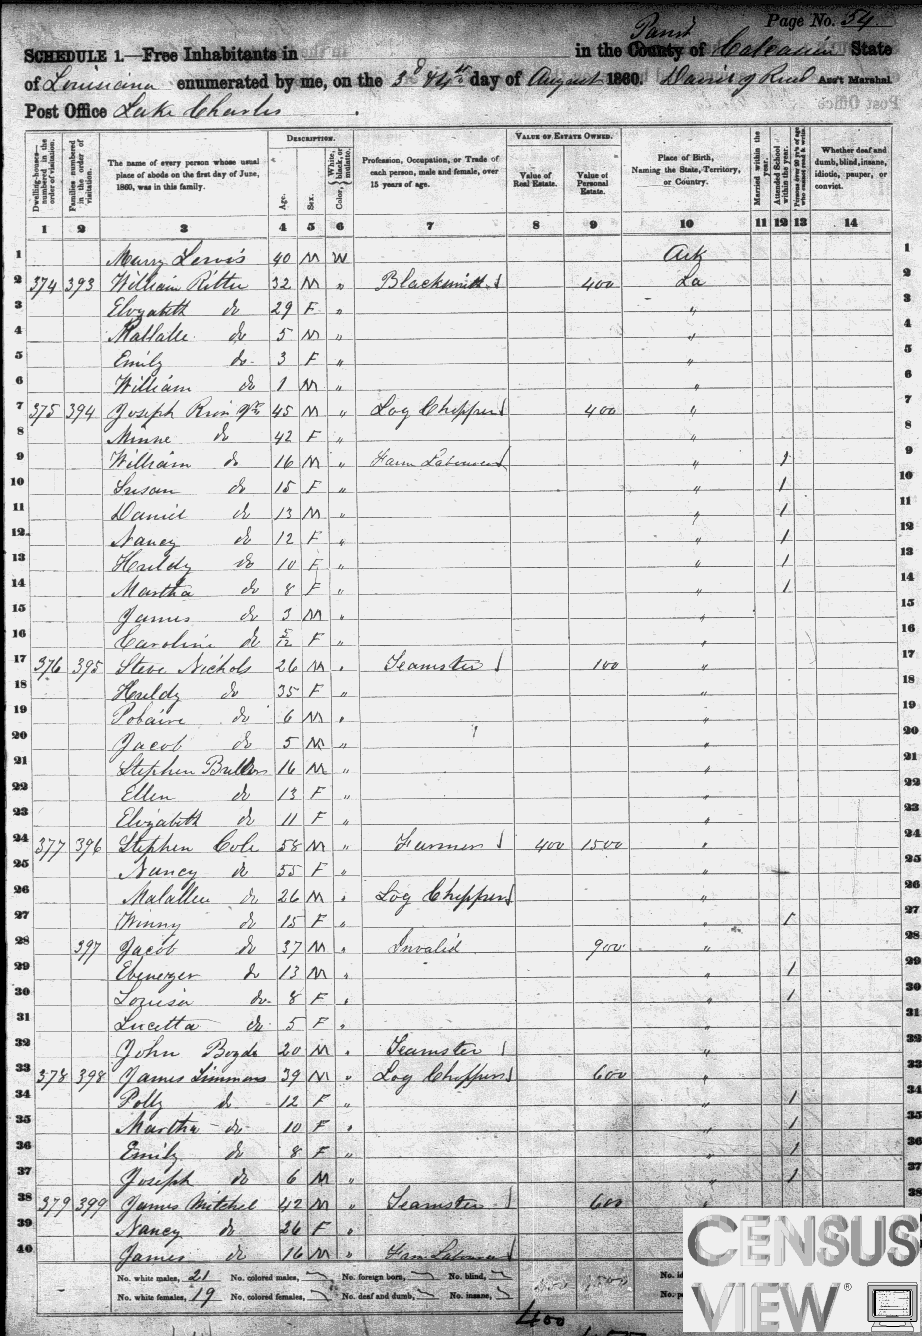 Page No. 54
SCHEDULE 1.—Free Inhabitants in in the County of Calcasieu State
of Louisiana enumerated by me, on the 3d & 4th day of August 1860. Ass't Marshal
Post Office Lake Charles
Dwelling-houses—numbered in the order of visitation.
Families numbered in the order of visitation.
The name of every person whose usual place of abode on the first day of June, 1860, was in this family.
DESCRIPTION.
Age.
Sex.
Color, White, black, or mulatto.
Profession, Occupation, or Trade of each person, male and female, over 15 years of age.
VALUE OF ESTATE OWNED.
Value of Real Estate.
Value of Personal Estate.
Place of Birth, Naming the State, Territory, or Country.
Married within the year.
Attended School within the year.
Persons over 20 y'rs of age who cannot read & write.
Whether deaf and dumb, blind, insane, idiotic, pauper, or convict.
1 2 3 4 5 6 7 8 9 10 11 12 13 14
1 Lewis 40 M W Ark 1
2 374 393 William Ritter 32 M " Blacksmith 400 La 2
3 Elizabeth do 29 F " " 3
4 do 5 M " " 4
5 Emily do 3 F " " 5
6 William do 1 M " " 6
7 375 394 Joseph 45 M " Log Chipper 400 " 7
8 Minne do 42 F " " 8
9 William do 16 M " Farm Labourer " 1 9
10 Susan do 15 F " " 1 10
11 Daniel do 13 M " " 1 11
12 Nancy do 12 F " " 1 12
13 Huldy do 10 F " " 1 13
14 Martha do 8 F " " 1 14
15 James do 3 M " " 15
16 Caroline do 5/12 F " " 16
17 376 395 Steve Nichols 26 M " Teamster 100 " 17
18 Huldy do 35 F " " 18
19 do 6 M " " 19
20 Jacob do 5 M " " 20
21 Stephen 16 M " " 21
22 Ellen do 13 F " " 22
23 Elizabeth do 11 F " " 23
24 377 396 Stephen Cole 58 M " Farmer 400 1500 " 24
25 Nancy do 55 F " " 25
26 do 26 M " Log Chipper " 26
27 Winny do 15 F " " 1 27
28 397 Jacob do 37 M " Invalid 900 " 28
29 Ebenezer do 13 M " " 1 29
30 Louisa do 8 F " " 1 30
31 Lucetta do 5 F " " 31
32 John 20 M " Teamster " 32
33 378 398 James Simmons 39 M " Log Chipper 600 " 33
34 Polly do 12 F " " 1 34
35 Martha do 10 F " " 1 35
36 Emily do 8 F " " 1 36
37 Joseph do 6 M " " 1 37
38 379 399 James Mitchel 42 M " Teamster 600 " 38
39 Nancy do 26 F " 39
40 James do 16 M " Farm Labourer
No. white males, 21 No. colored males, No. foreign born, No. blind,
No. white females, 19 No. colored females, No. deaf and dumb, No. insane,
400
CENSUS
VIEW®